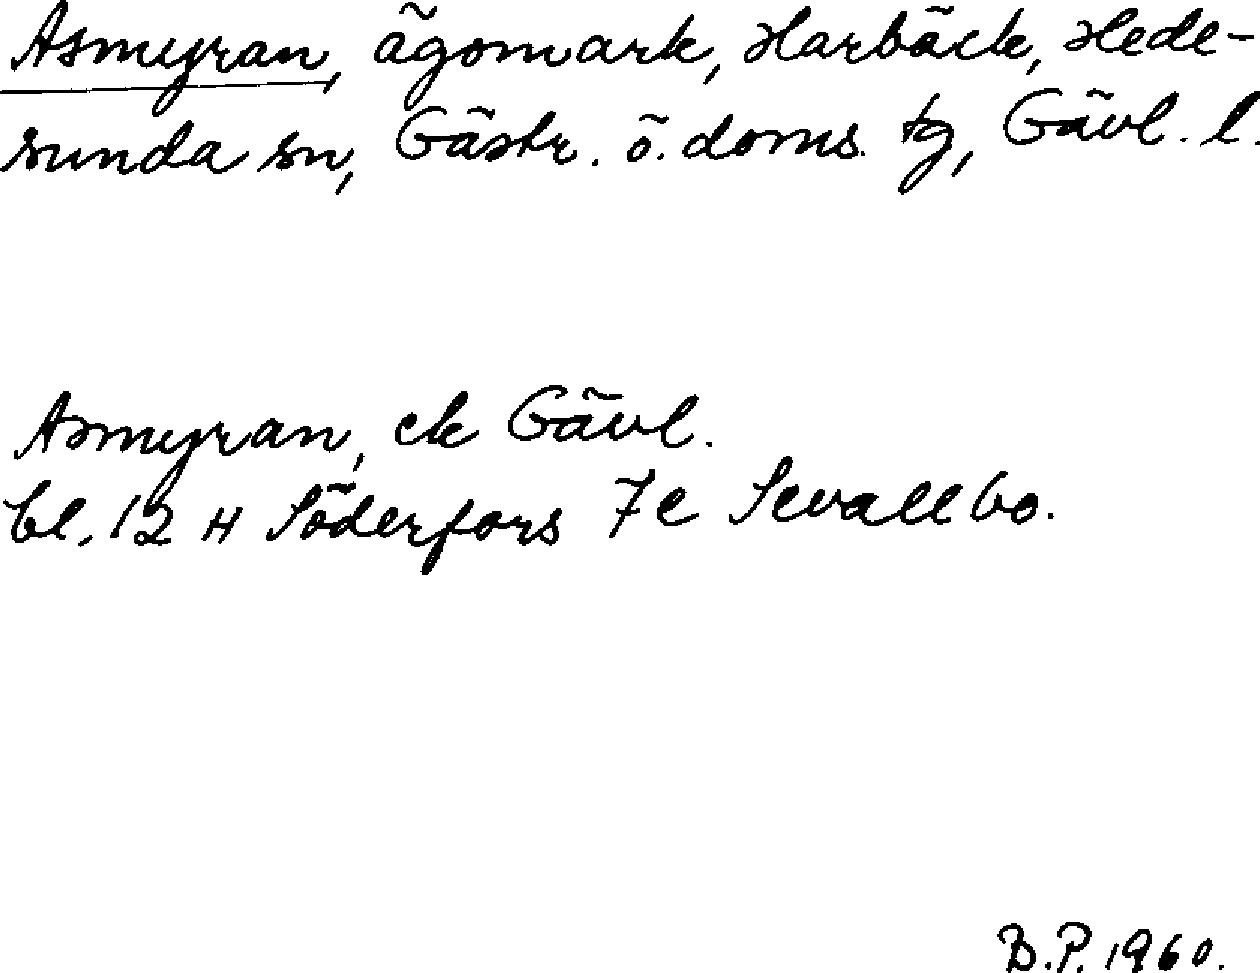 Asmyran, ägomark, Harbäck, Hede-
sunda sn, Gästr. ö. doms. tg, Gävl. l.
Asmyran, ek Gävl.
bl. 12 H Söderfors 7e Sevallbo.
B.P. 1960.